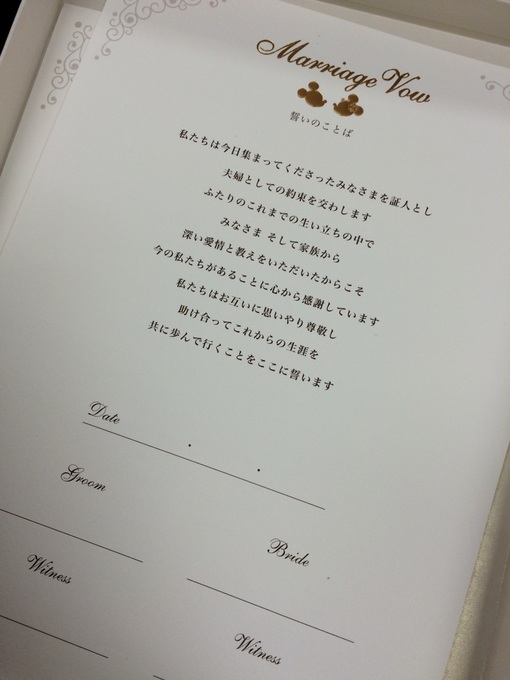 Marriage Vow
誓いのことば
私たちは今日集まってくださったみなさまを証人とし
夫婦としての約束を交わします
ふたりのこれまでの生い立ちの中で
みなさま そして家族から
深い愛情と教えをいただいたからこそ
今の私たちがあることに心から感謝しています
私たちはお互いに思いやり尊敬し
助け合ってこれからの生涯を
共に歩んで行くことをここに誓います
Date . .
Groom
Bride
Witness
Witness